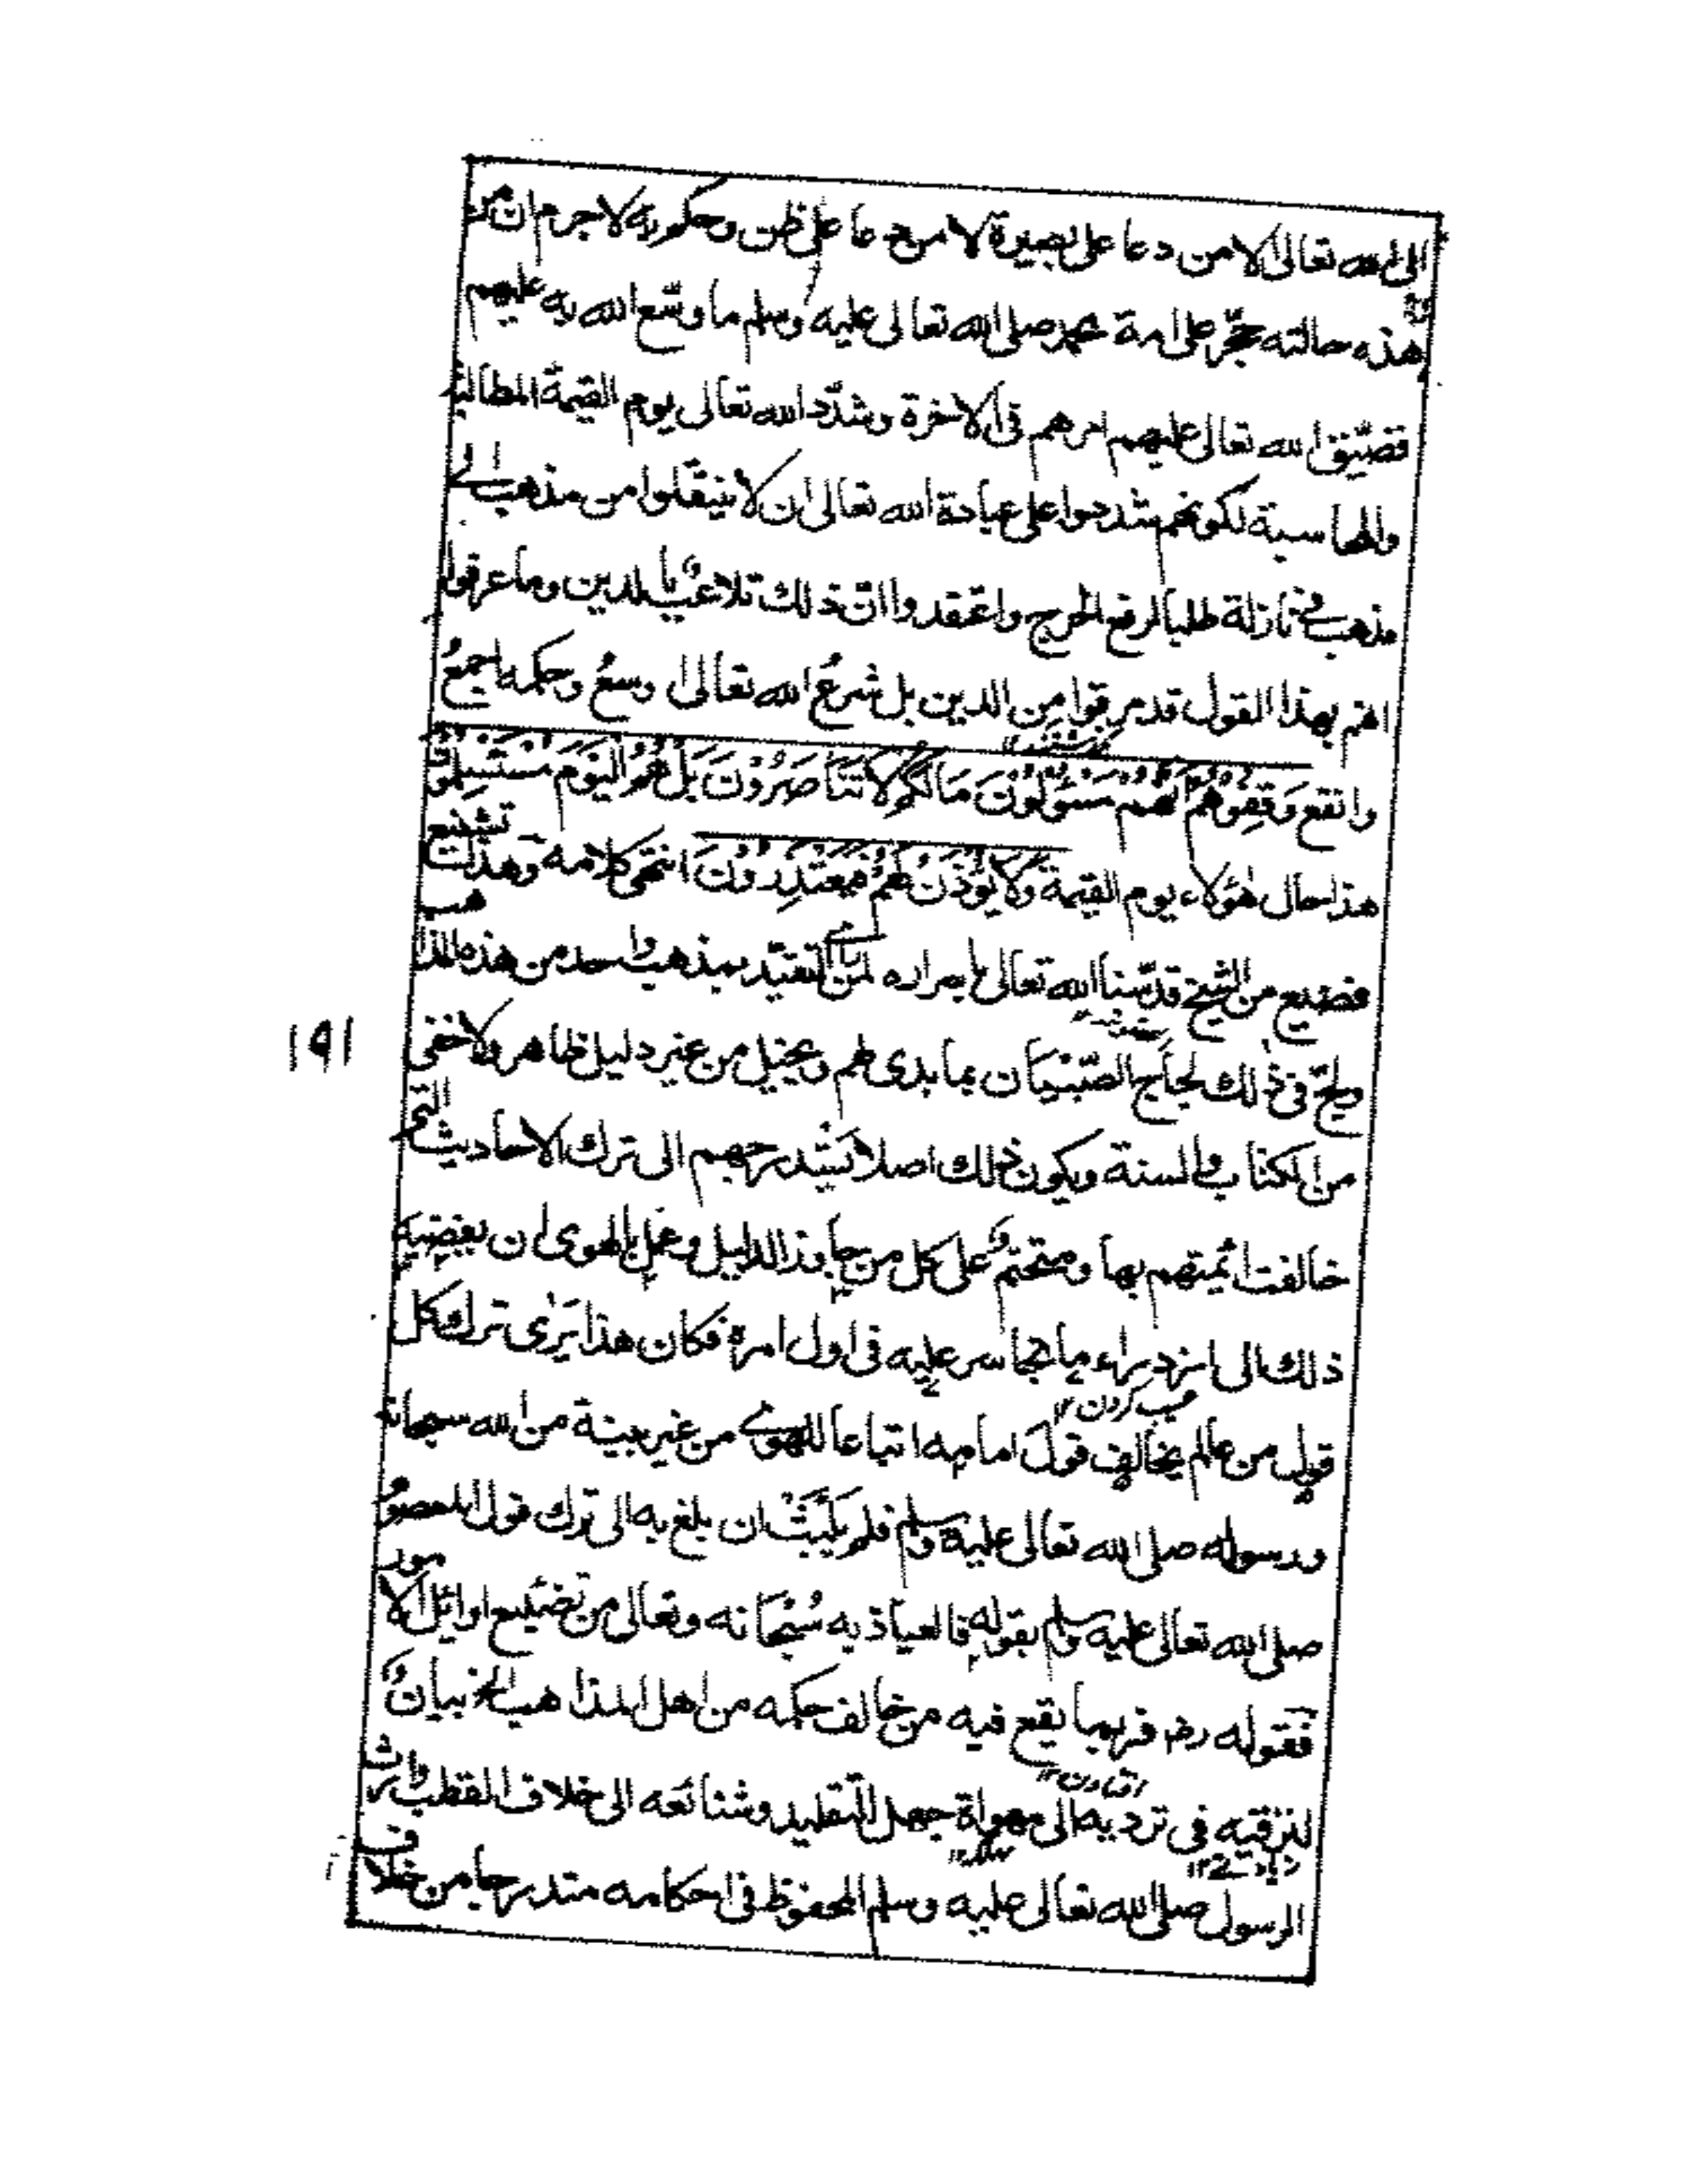 الى الله تعالى الا من دعا على بصيرة لا من دعا على ظن وحكم به لا جرم ان من
هذه حالته حجّر على امة محمد صلى الله تعالى عليه وسلم ما وسّع الله به عليهم
فضيّق الله تعالى عليهم امرهم فى الاخرة وشدّد الله تعالى يوم القيمة المطالبة
والمحاسبة لكونهم شددوا على عبادة الله تعالى ان لا ينتقلوا من مذهب الى
مذهب فى نازلة طلبا لرفع الحرج واعتقدوا ان ذلك تلاعب بالدين وما عرفوا
انهم بهذا القول قد مرقوا من الدين بل شرع الله تعالى اوسع وحكمه اجمع
وانفع وَقِفُوهُمْ اِنَّهُمْ مَسْئُولُونَ مَا لَكُمْ لَا تَنَاصَرُوْنَ بَلْ هُمُ الْيَوْمَ مُسْتَسْلِمُوْنَ
هذا حال هؤلاء يوم القيمة وَلَا يُؤْذَنُ لَهُمْ فَيَعْتَذِرُوْنَ انتهى كلامه وهذا تشنيع
فضيع من الشيخ قدّسنا الله تعالى باسراره لمن التقيّد بمذهب واحد من هذه المذاهب
ويلحّ فى ذلك لجاج الصّبْيان بما بدى لهم ويخيل من غير دليل ظاهر ولا خفى
من الكتاب والسنة ويكون ذلك اصلا يتدرجهم الى ترك الاحاديث التى
خالفت ائمتهم بها وصحّتهم على كل من جاوز الدليل وعمل بالهوى ان يفضيه
ذلك الى ازدراء ما تجاسر عليه فى اول امره فكان هذا يَرى ترك كل
عيب كردن ١٢
قول من عالم يخالف قول امامه اتباعا للهوى من غير بينة من الله سبحانه
ورسوله صلى الله تعالى عليه وسلم فلم يَلْبَثْ ان بلغ به الى ترك قول المعصوم
صلى الله تعالى عليه وسلم بقوله فالعياذ به سُبْحانه وتعالى من تضييع اوائل الامور
فقوله رضـ فربما يقع فيه من خالف حكمه من اهل المذاهب الخ بيان
افتادن ١٢
لترقيه فى ترديه الى مهواة جهل التقليد وشنائعه الى خلاف القطب وارث
الرسول صلى الله تعالى عليه وسلم المحفوظ فى احكامه متدرجا من خلاف
١٩١